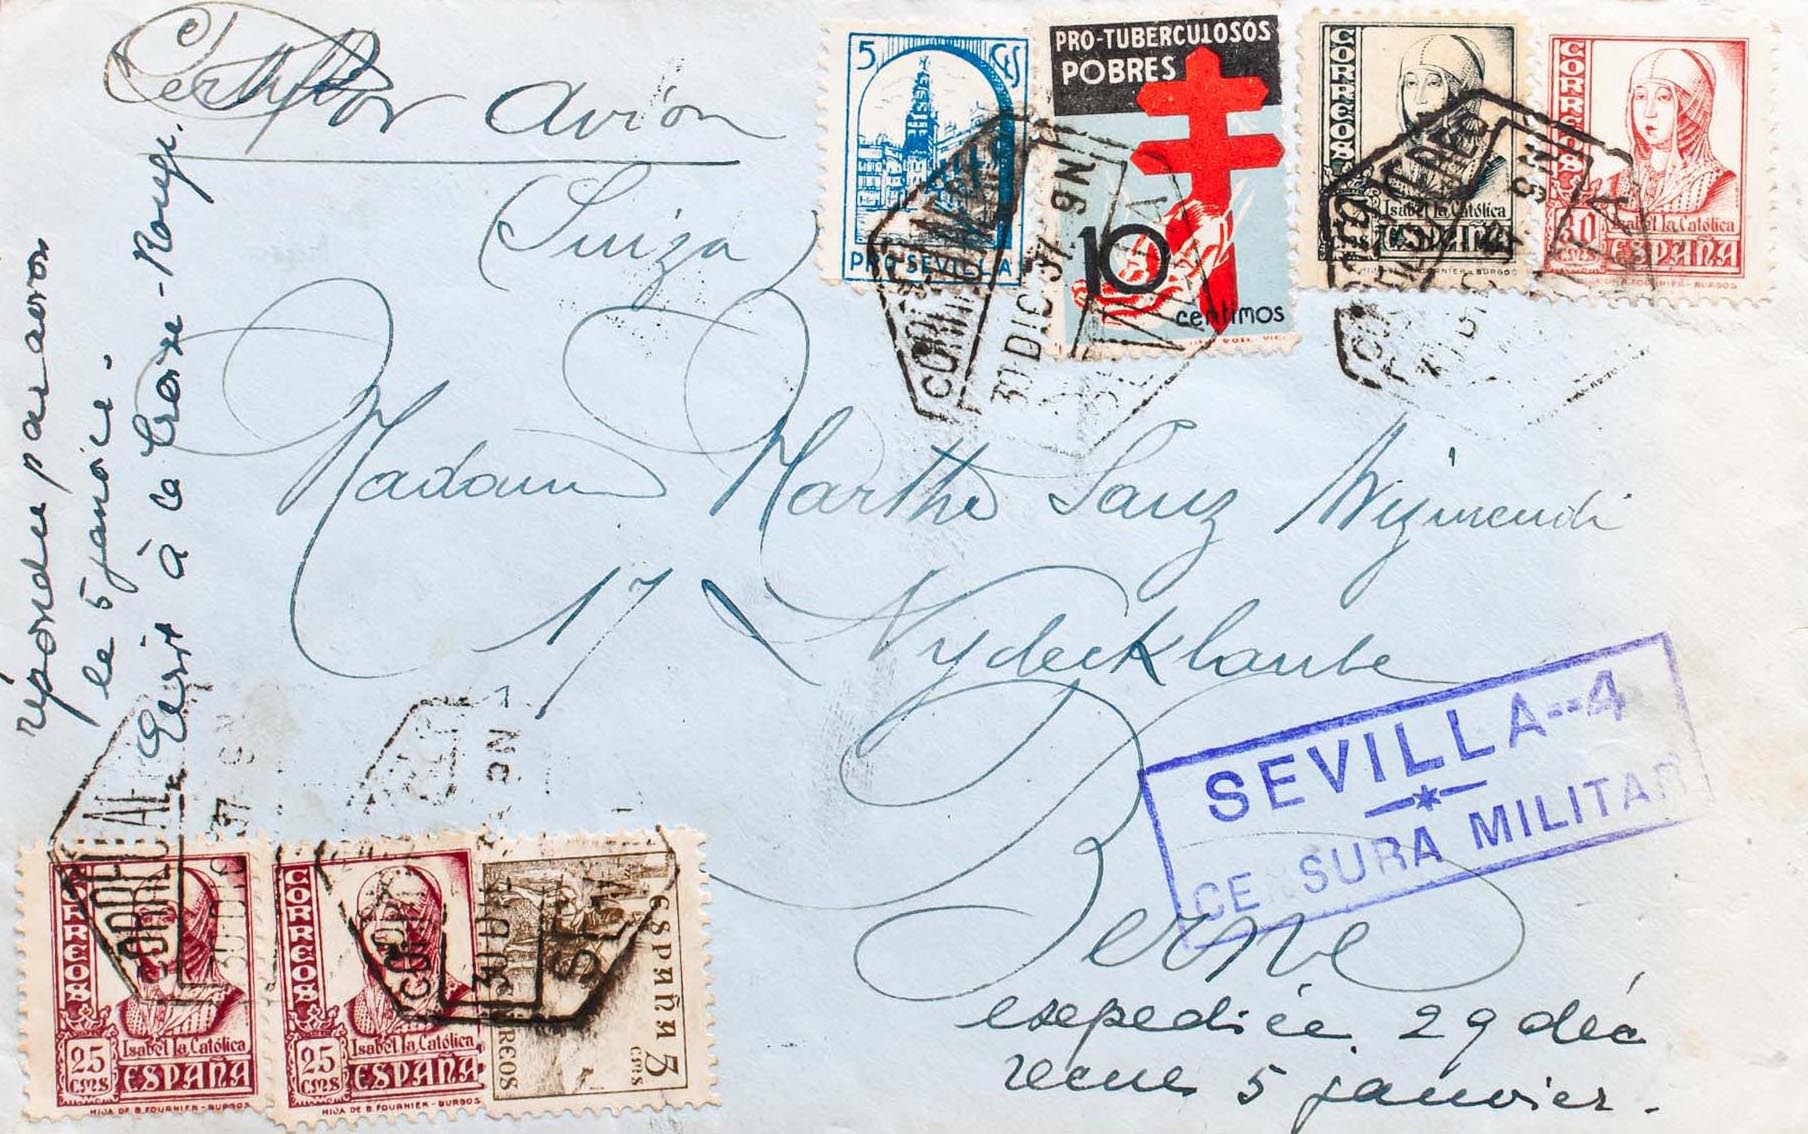 Por Avión
(Suiza)
5 Cts
PRO SEVILLA
PRO-TUBERCULOSOS
POBRES
10
centimos
CORREOS
Isabel la Católica
CMS ESPAÑA
HIJA DE B. FOURNIER - BURGOS
CORREOS
30
CMS
Isabel la Católica
ESPAÑA
HIJA DE B. FOURNIER - BURGOS
30 DIC 37 9N
répondu par avion
le 5 janvier.
Écrit à la Croix-Rouge.
Madame Marthe Sanz
17 Nydecklaube
Berne
SEVILLA--4
CENSURA MILITAR
expediée 29 déc
recue 5 janvier.
CORREOS
25
CMS
Isabel la Católica
ESPAÑA
HIJA DE B. FOURNIER - BURGOS
CORREOS
25
CMS
Isabel la Católica
ESPAÑA
HIJA DE B. FOURNIER - BURGOS
ESPAÑA 5
CMS
CORREOS